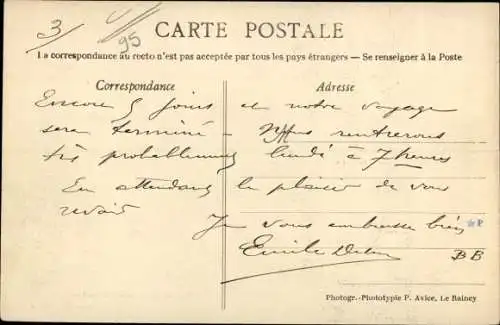 3
95
CARTE POSTALE
La correspondance au recto n'est pas acceptée par tous les pays étrangers — Se renseigner à la Poste
Correspondance
Adresse
Encore 5 jours et notre voyage
sera terminé - Nous rentrerons
très probablement lundi à 7 heures
En attendant le plaisir de vous
revoir Je vous embrasse bien
Emile
BB
Photogr.-Phototypie P. Avice, Le Rainey